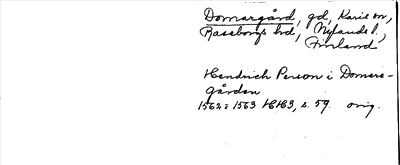 Domargård, gd, Karis sn,
Raseborgs hd, Nylands l.,
Finland
Hendrich Person i Domers-
gården
1562: 1563 H163, s. 59. orig.